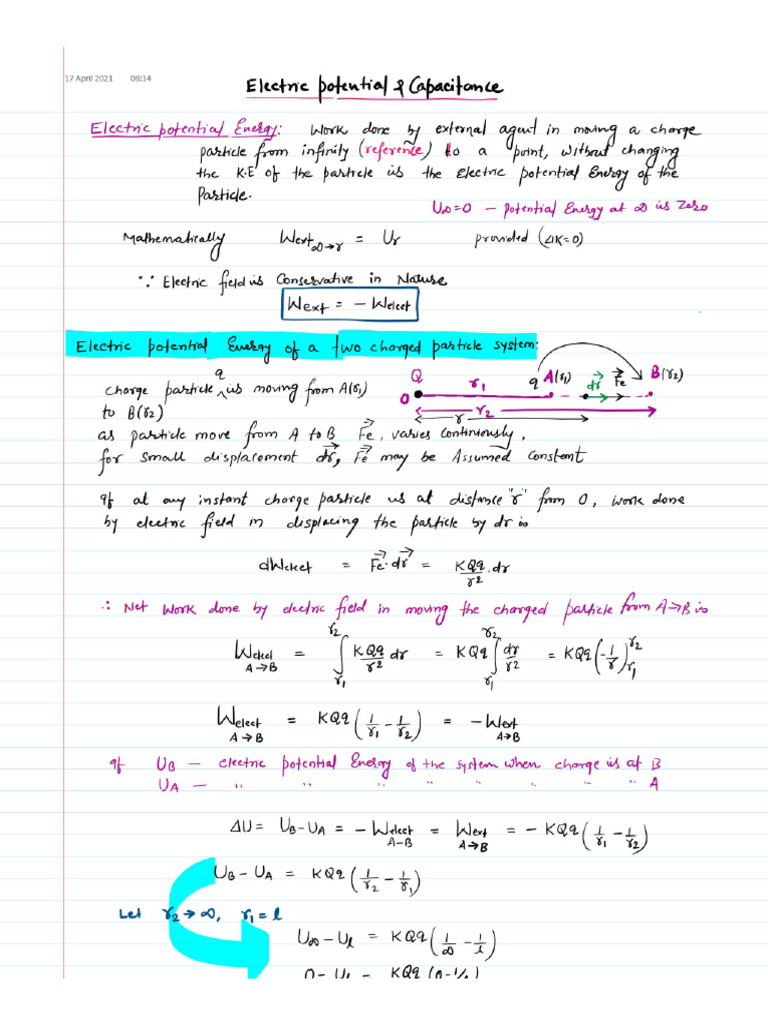 17 April 2021 08:14
Electric potential & Capacitance
Electric potential Energy: Work done by external agent in moving a charge
particle from infinity (reference) to a point, without changing
the K.E of the particle is the electric potential Energy of the
Particle.
U∞=0 – Potential Energy at ∞ is Zero
Mathematically Wext ∞→r = Ur provided (ΔK=0)
∵ Electric field is Conservative in Nature
Wext = – Welect
Electric potential Energy of a two charged particle system:
charge particle q is moving from A(r1)
to B(r2)
Q r1 q A(r1) dr Fe B(r2)
O r2
r
as particle move from A to B Fe, varies continuously,
for small displacement dr, Fe may be Assumed constant
If at any instant charge particle is at distance "r" from O, work done
by electric field in displacing the particle by dr is
dWelect = Fe·dr = KQq/r² .dr
∴ Net work done by electric field in moving the charged particle from A→B is
Welect A→B = ∫r1^r2 KQq/r² dr = KQq ∫r1^r2 dr/r² = KQq (-1/r)r1^r2
Welect A→B = KQq (1/r1 - 1/r2) = -Wext A→B
If UB – electric potential Energy of the system when charge is at B
UA – " " " " " " " A
ΔU = UB-UA = -Welect A-B = Wext A→B = - KQq (1/r1 - 1/r2)
UB- UA = KQq (1/r2 - 1/r1)
Let r2→∞, r1=l
U∞-Ul = KQq (1/∞ - 1/l)
0- Ul = KQq (0-1/l)